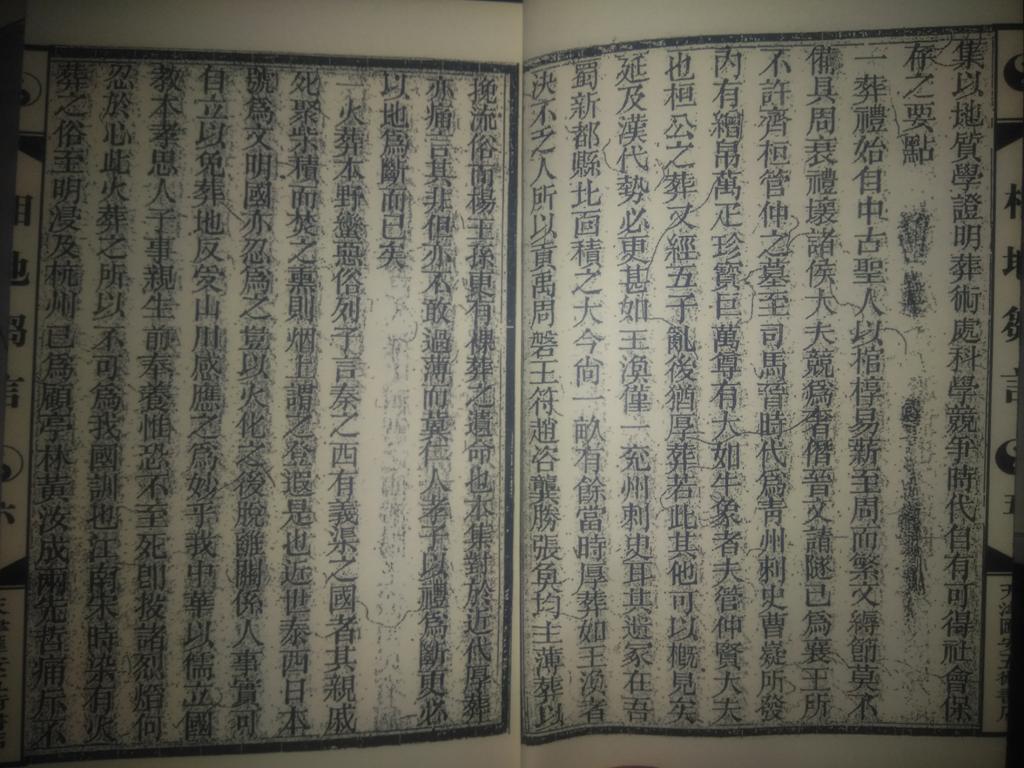 集以地質學證明葬術處科學競爭時代自有可得社會保
存之要點
一葬禮始自中古聖人以棺椁易薪至周而縟文禆節莫不
備具周衰禮壞諸侯大夫競為奢僭晉文請隧已為襄王所
不許齊桓管仲之墓至司馬晉時代為青州刺史曹嶷所發
內有繒帛萬疋珍寶巨萬尊有大如牛象者夫管仲賢大夫
也桓公之葬又經五子亂後猶厚葬若此其他可以概見矣
延及漢代勢必更甚如王渙僅一兖州刺史耳其逝冢在吾
蜀新都縣北面積之大今尙一畝有餘當時厚葬如王渙者
決不乏人所以貢禹周磐王符趙咨龔勝張奐均主薄葬以
挽流俗而楊王孫更有裸葬之遺命也本集對於近代厚葬
亦痛言其非但亦不敢過薄而冀仁人孝子以禮為斷更必
以地為斷而已矣
一火葬本野蠻惡俗列子言秦之西有義渠之國者其親戚
死聚柴積而焚之熏則烟上謂之登遐是也近世泰西日本
號為文明國亦忍為之豈以火化之後脫離關係人事實可
自立以免葬地反受山川感應之為妙乎我中華以儒立國
教本孝思人子事親生前奉養惟恐不至死即投諸烈燄何
忍於心此火葬之所以不可為我國訓也江南宋時染有火
葬之俗至明寖及杭州已為顧亭林黃汝成兩先哲痛斥不
相地芻言
五
相地芻言
六